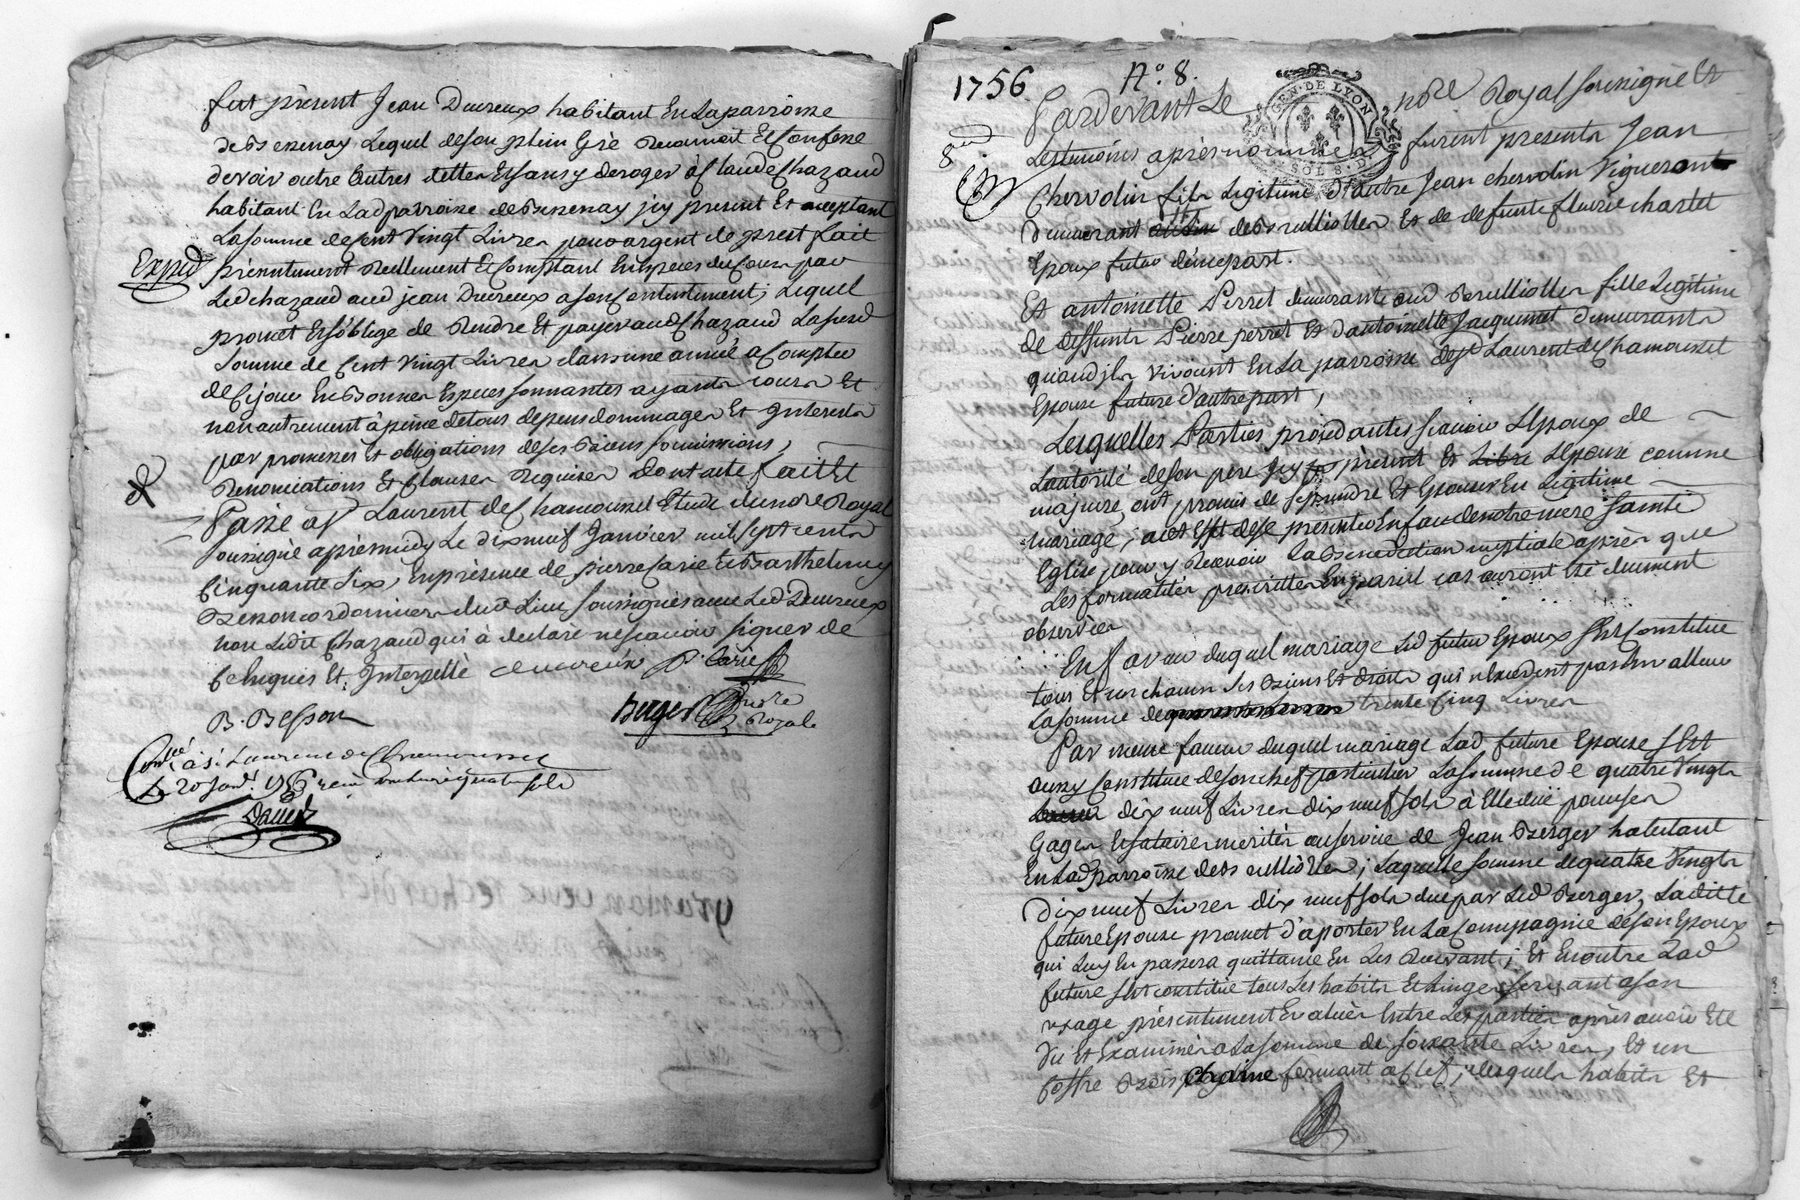 fut présent Jean Ducreux habitant En La parroisse
de Brenenay Lequel de son plein Gré Reconnoit Et Confesse
devoir outre Autres dettes Et sans y deroger à Claude Chazaud
habitant En Lad parroisse de Brenenay jcy present Et acceptant
La somme de Cent Vingt Livres pour argent de prest fait
Exped
présentement Reellement Et Comptant En Especes du Cours par
Led chazaud aud jean Ducreux a son Contentement; Lequel
promet Et s'oblige de Rendre Et payer aud Chazaud La susd
somme de Cent Vingt Livres dans une année a Compter
de Cejour En Bonnes Especes sonnantes ayants cours Et
non autrement à peine de tous depens dommages Et Interests
par promesses Et obligations de ses Biens soumissions,
Renonciations Et Clauses Requises Dont acte fait Et
Passé a St Laurent de Chamousset Etude du nore Royal
soussigné après midy Le dix neuf Janvier mil sept cents
Cinquante six, En présence de pierre Carie Et Barthelemy
Besson cordonniers dud Lieu soussignés avec Led Ducreux
non Ledit Chazaud qui à declaré ne scavoir signer de
Ce Enquis Et Interpellé ducreux P. Carie
B. Besson
Berger nore Royale
Conlé à St Laurent de Chamousset
Le 20 Janv. 1756 reçu quatre sols
David
1756 N° 8.
GEN. DE LYON
SOL 8 D
Pardevant Le nore Royal soussigné Et
8em
Les temoins après nommés furent presents Jean
Chervolin fils Legitime d'autre Jean chervolin Vigneron
demeurant de Brullioles Et de defunte fleurie chastel
Epoux futur d'une part.
Et antoinette Perret demeurante aud Brulliolles fille Legitime
de deffunts Pierre perret Et d'antoinette Jacquemet demeurants
quand jls vivoient En La parroisse de St Laurent de Chamousset
Epouse future d'autre part,
Lesquelles Parties procedantes scavoir L'Epoux de
L'autorité de son pere Jcy présent Et L'Epouse comme
majeure, ont promis de se prendre Et Epouser En Legitime
mariage, a cet Effet de se présenter En face de notre mere Sainte
Eglise pour y Recevoir La Benediction nuptiale après que
Les formalités prescrittes En pareil cas auront été duement
observées
En faveur duquel mariage Led futur Epoux s'Est Constitué
tous Et un chacun ses Biens Et droits qui n'excedent pas En valleur
La somme de trente Cinq Livres
Par meme faveur duquel mariage Lad. future Epouse s'Est
aussy Constituée de son chef particulier La somme de quatre Vingts
dix neuf Livres dix neuf sols à Elle düe pour ses
Gages Et salaires merités au service de Jean Berger habitant
En Lad parroisse de Brulliolles; Laquelle somme de quatre Vingts
Dix neuf Livres dix neuf sols due par Led Berger, La ditte
future Epouse promet d'aporter En La Compagnie de son Epoux
qui Luy En passera quittance En Les Recevant; Et En outre Lad
future s'Est constituée tous Les habits Et Linges servant a son
usage présentement Evalués Entre Les parties après avoir Eté
Vu Et Examinés a La somme de soixante Livres, Et un
Coffre Bois chaine fermant a Clef; Lesquels habits Et